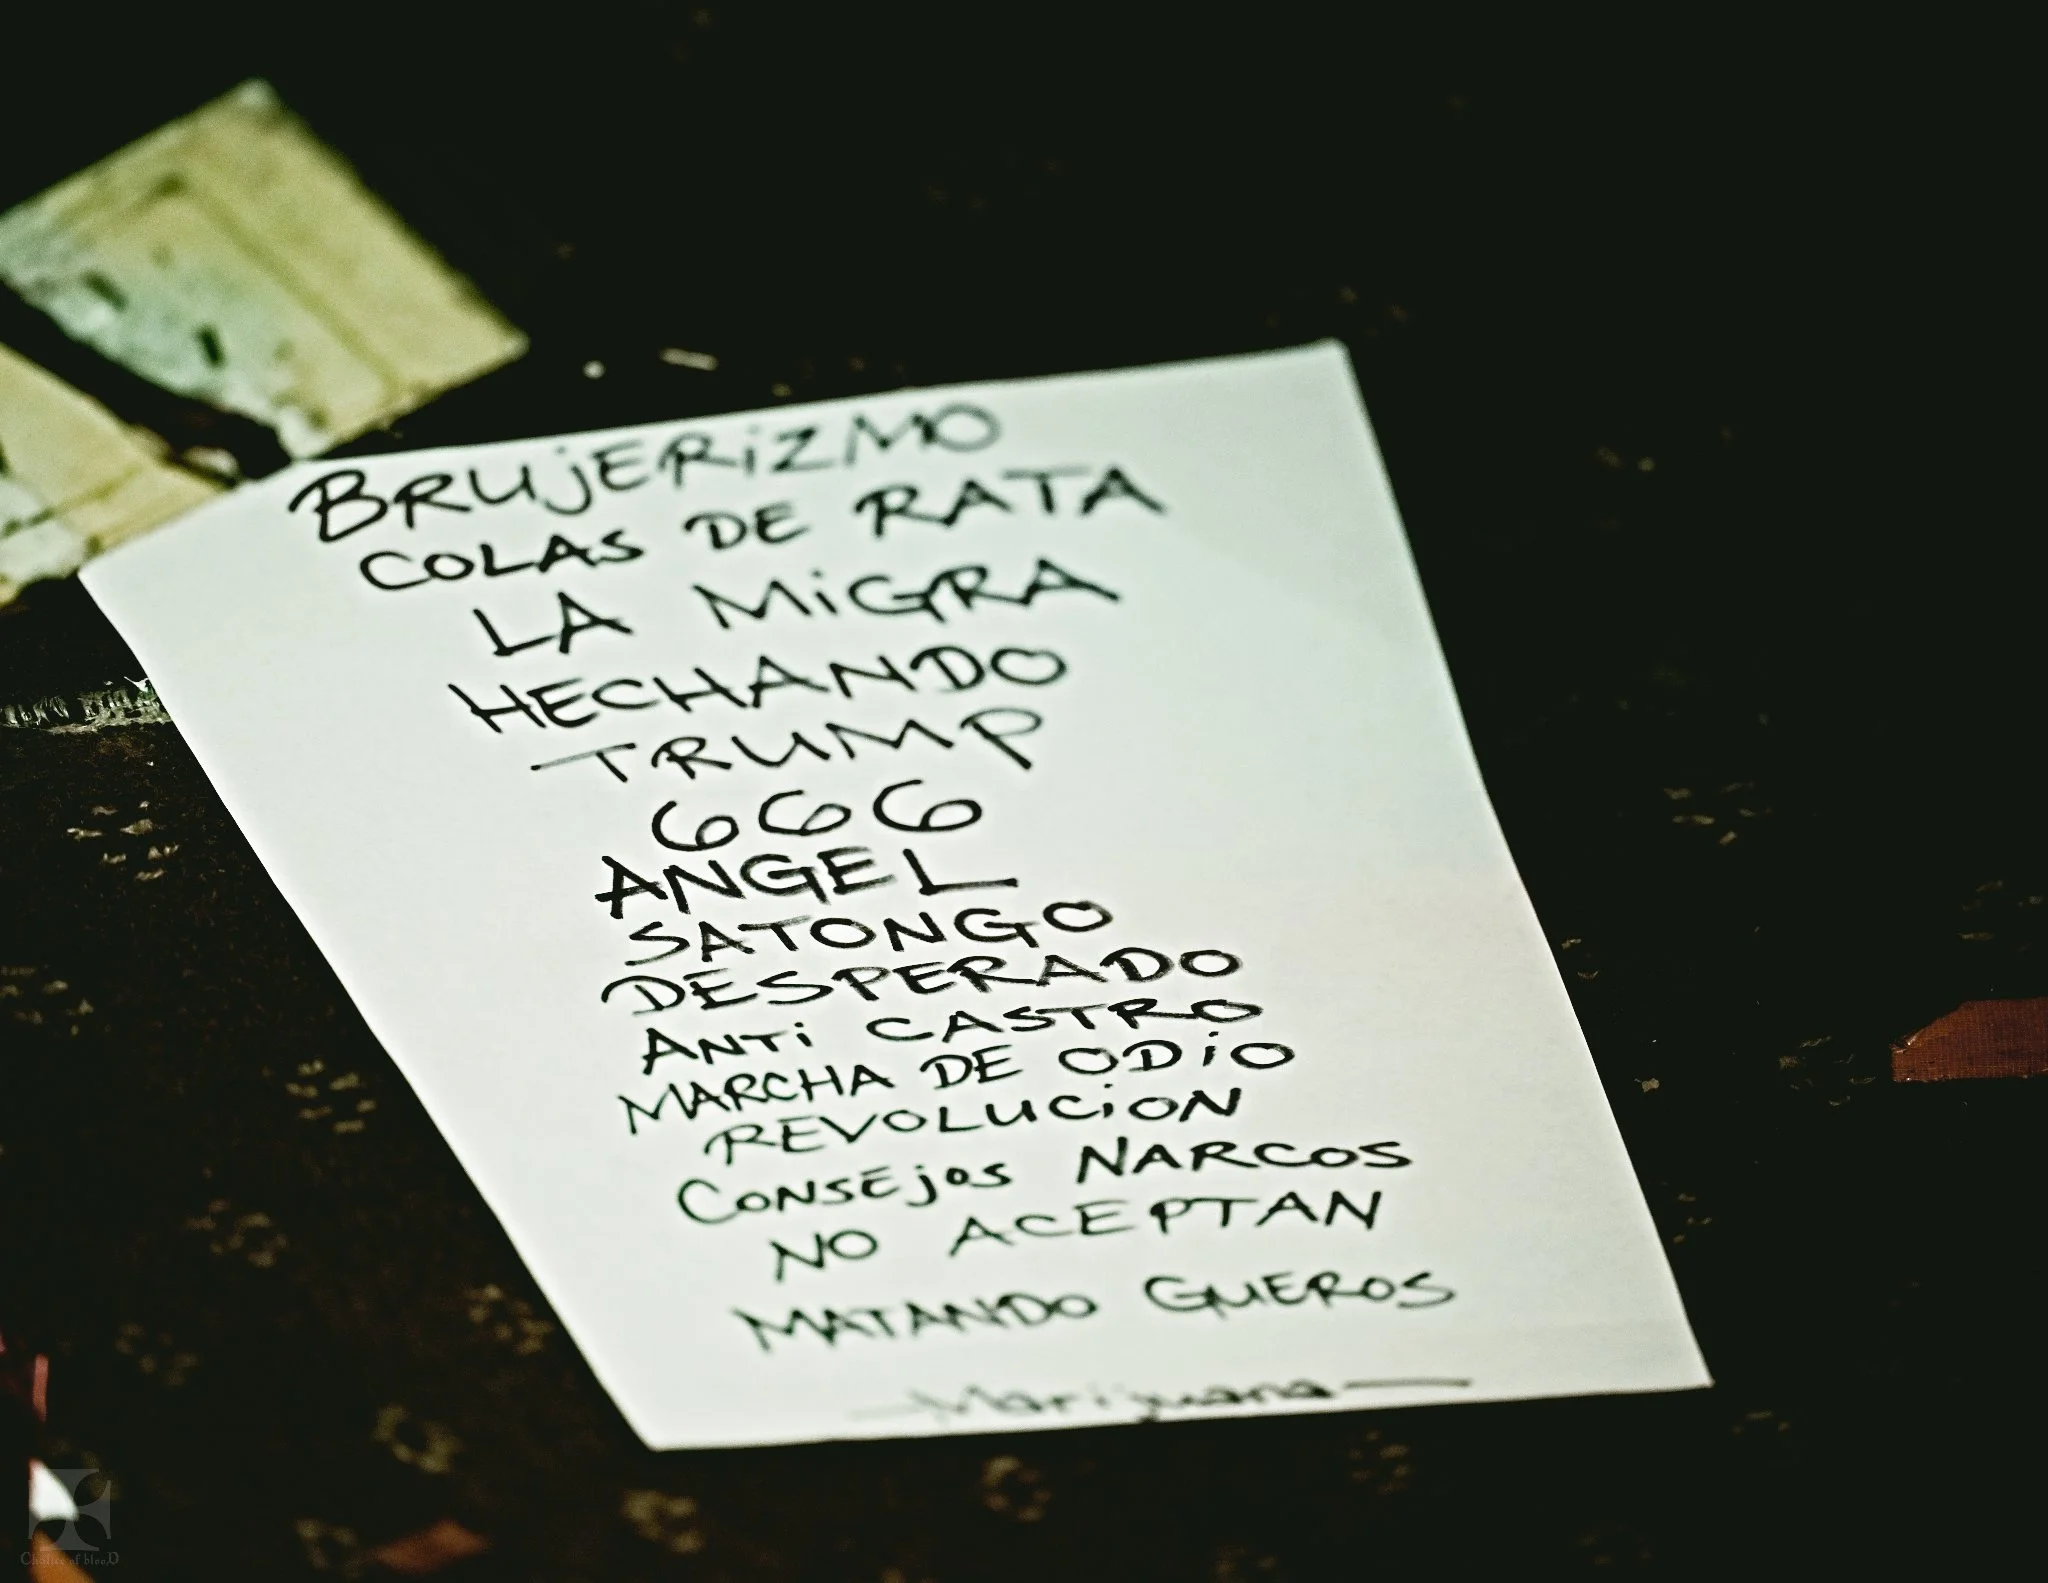 BRUjERiZMO
COLAS DE RATA
LA MiGRA
HECHANDO
TRUMP
666
ANGEL
SATONGO
DESPERADO
ANTi CASTRO
MARCHA DE ODiO
REVOLUCiON
CONSEjOS NARCOS
NO ACEPTAN
MATANDO GUEROS
—Marijuana—
Chalice of blooD